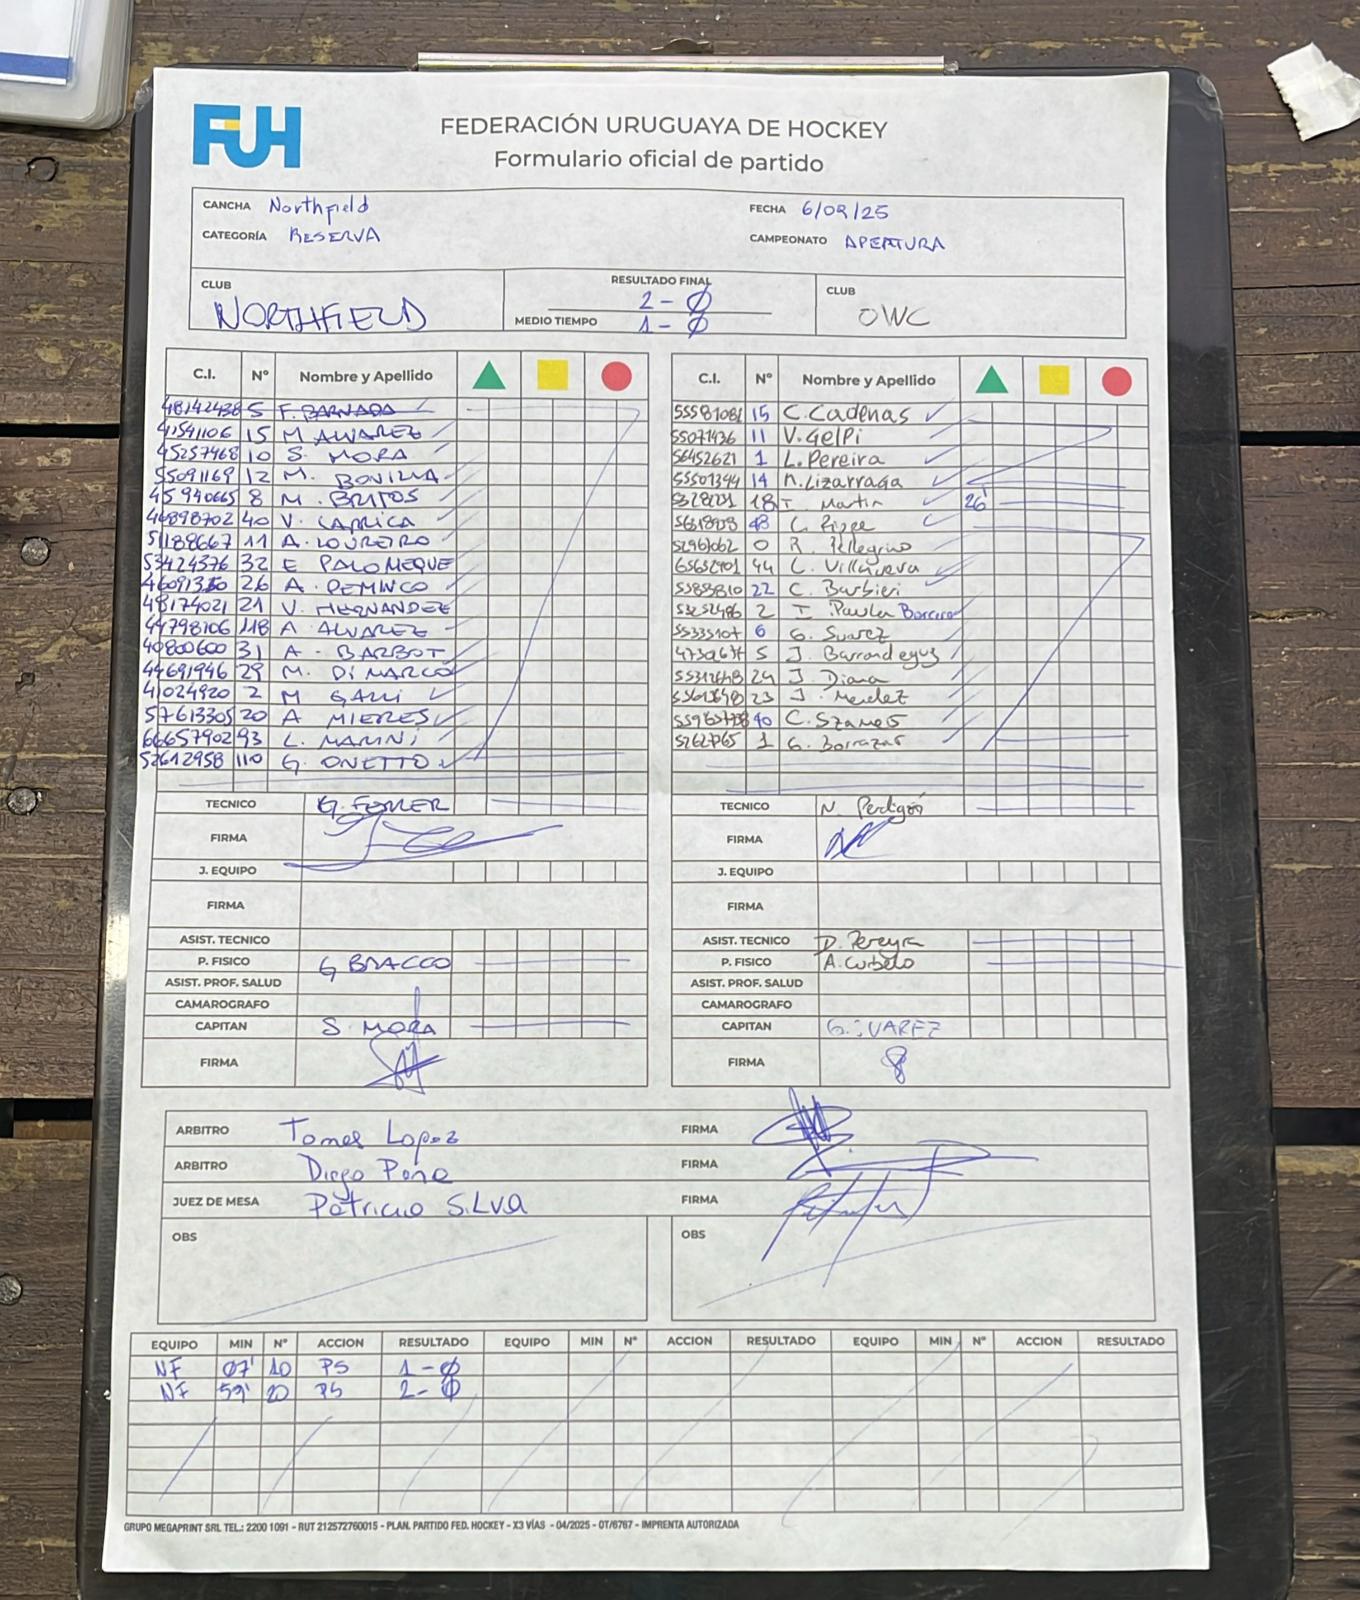 FUH
FEDERACIÓN URUGUAYA DE HOCKEY
Formulario oficial de partido
CANCHA Northfield FECHA 6/09/25
CATEGORÍA RESERVA CAMPEONATO APERTURA
CLUB NORTHFIELD
RESULTADO FINAL 2-Ø
MEDIO TIEMPO 1-Ø
CLUB OWC
C.I. Nº Nombre y Apellido
48142438 5 F. BARNADA
41541106 15 M ALVAREZ
45257468 10 S. MORA
55091169 12 M. BONILLA
45940665 8 M. BRITOS
46898702 40 V. CARRICA
51188667 11 A. LOUREIRO
53424376 32 E PALOMEQUE
46091350 26 A. PEMINCO
48174021 21 V. HERNANDEZ
44798106 118 A ALVAREZ
40800600 31 A. BARBOT
44691946 29 M. DI MARCO
41024920 2 M GALLI
57613305 20 A MIERES
66657902 93 L. MARINI
52612958 110 G. ONETTO
TECNICO G. FERRER
FIRMA
J. EQUIPO
FIRMA
ASIST. TECNICO
P. FISICO G BRACCO
ASIST. PROF. SALUD
CAMAROGRAFO
CAPITAN S. MORA
FIRMA
C.I. Nº Nombre y Apellido
55581081 15 C. Cadenas
55071436 11 V. Gelpi
56452621 1 L. Pereira
55501394 14 M. Lizarraga
18 I. Martin 26'
48 C.
0 R. Pellegrino
44 C. Villanueva
22 C. Barbieri
2 I Paula Barreiro
6 G. Suarez
5 J. Barrondeguy
24 J. Diana
23 J. Mendez
40 C.
1 G. Borrazas
TECNICO N. Perdigón
FIRMA
J. EQUIPO
FIRMA
ASIST. TECNICO D. Pereyra
P. FISICO A. Cubelo
ASIST. PROF. SALUD
CAMAROGRAFO
CAPITAN G. SUAREZ
FIRMA
ARBITRO Tomas Lopez FIRMA
ARBITRO Diego Peña FIRMA
JUEZ DE MESA Patricio SiLva FIRMA
OBS OBS
EQUIPO MIN Nº ACCION RESULTADO EQUIPO MIN Nº ACCION RESULTADO EQUIPO MIN Nº ACCION RESULTADO
NF 07' 10 PS 1-Ø
NF 59' 20 PS 2-Ø
GRUPO MEGAPRINT SRL TEL.: 2200 1091 - RUT 212572760015 - PLAN. PARTIDO FED. HOCKEY - X3 VÍAS - 04/2025 - OT/6767 - IMPRENTA AUTORIZADA